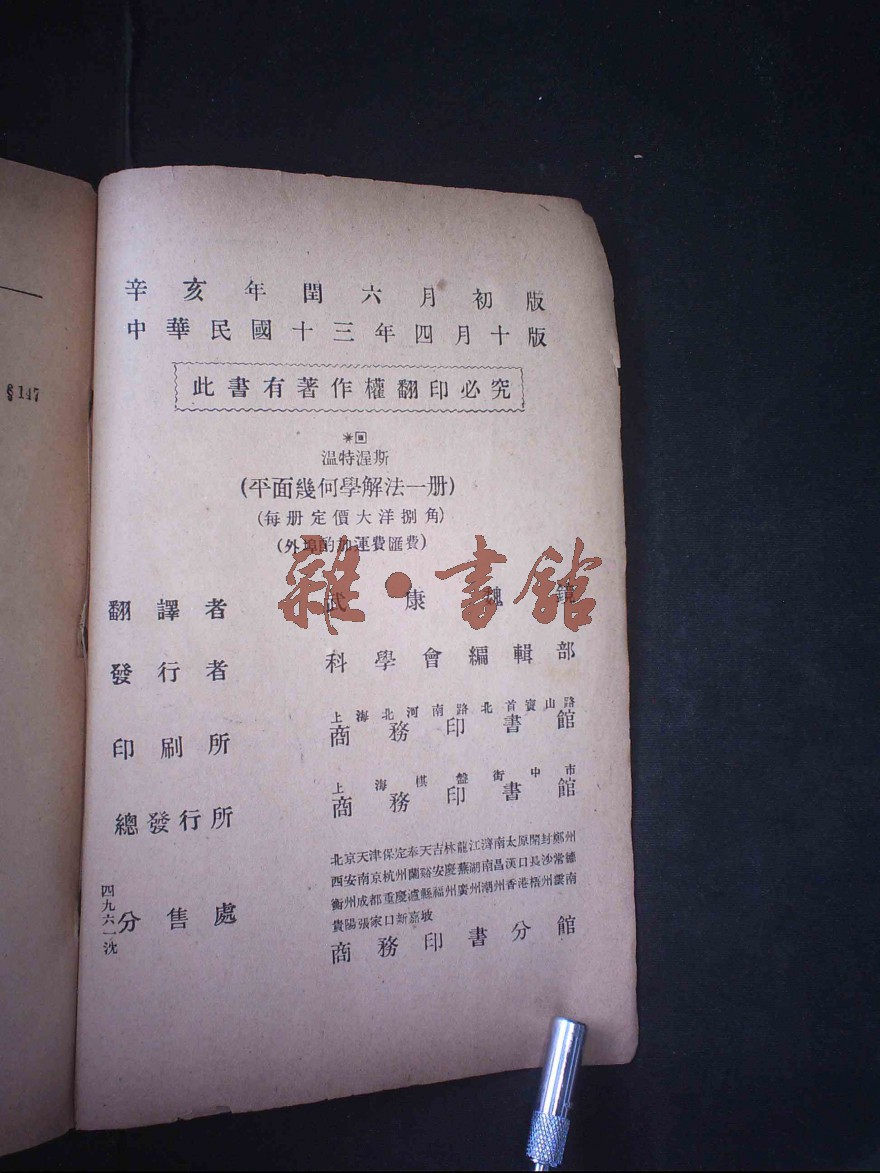 §147
辛亥年閏六月初版
中華民國十三年四月十版
此書有著作權翻印必究
溫特渥斯
(平面幾何學解法一册)
(每册定價大洋捌角)
(外埠酌加運費匯費)
翻譯者 武康魏鏡
發行者 科學會編輯部
上海北河南路北首寶山路
印刷所 商務印書館
上海棋盤街中市
總發行所 商務印書館
北京天津保定奉天吉林龍江濟南太原開封鄭州
西安南京杭州蘭谿安慶蕪湖南昌漢口長沙常德
衡州成都重慶瀘縣福州廣州潮州香港梧州雲南
貴陽張家口新嘉坡
分售處 商務印書分館
四九六一沈
雜·書館